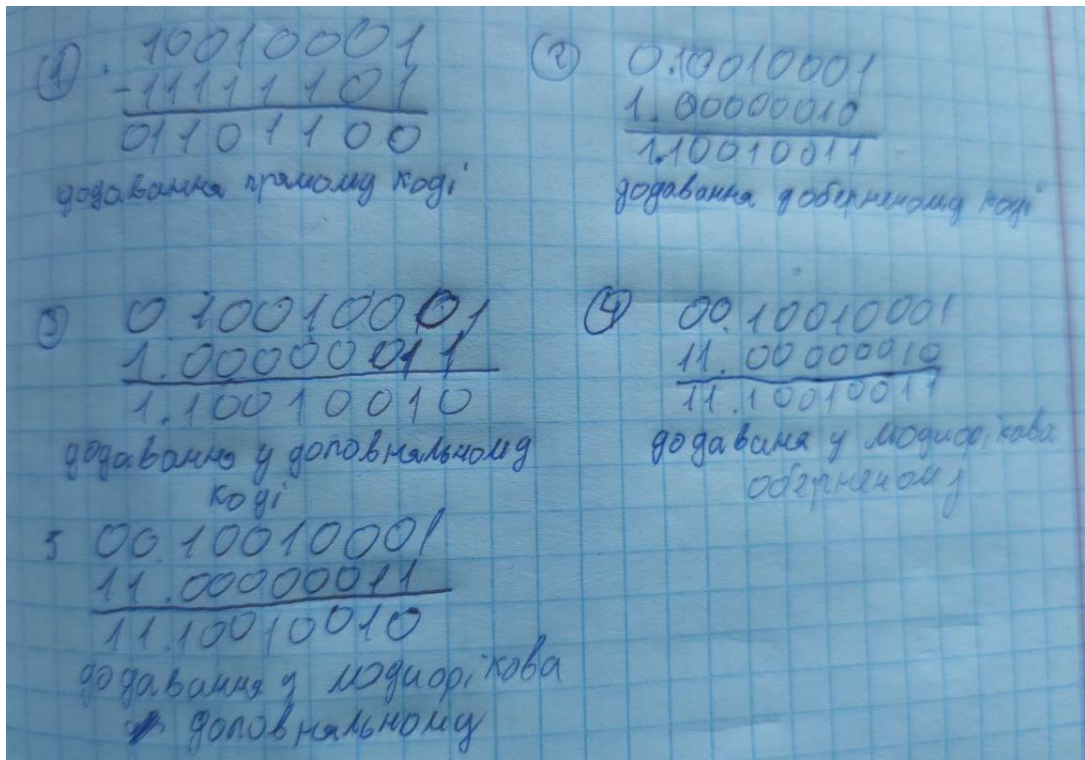 ① . 10010001
-11111101
01101100
додавання прямому коді
② 0.10010001
1.00000010
1.10010011
додавання у оберненому коді
③ 0.10010001
1.00000011
1.10010010
додавання у доповняльному
коді
④ 00.10010001
11.00000010
11.10010011
додаваня у модифікова
оберненому
5 00.10010001
11.00000011
11.10010010
додавання у модифікова
доповняльному